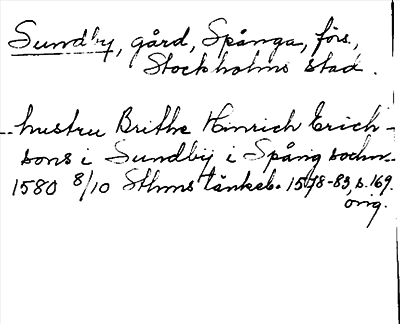 Sundby, gård, Spånga, förs.,
Stockholms stad.
hustru Brithe Hinrich Erich-
sons i Sundbÿ i Spång sochn
1580 8/10 Sthms tänkeb. 1578-83, s. 169.
orig.